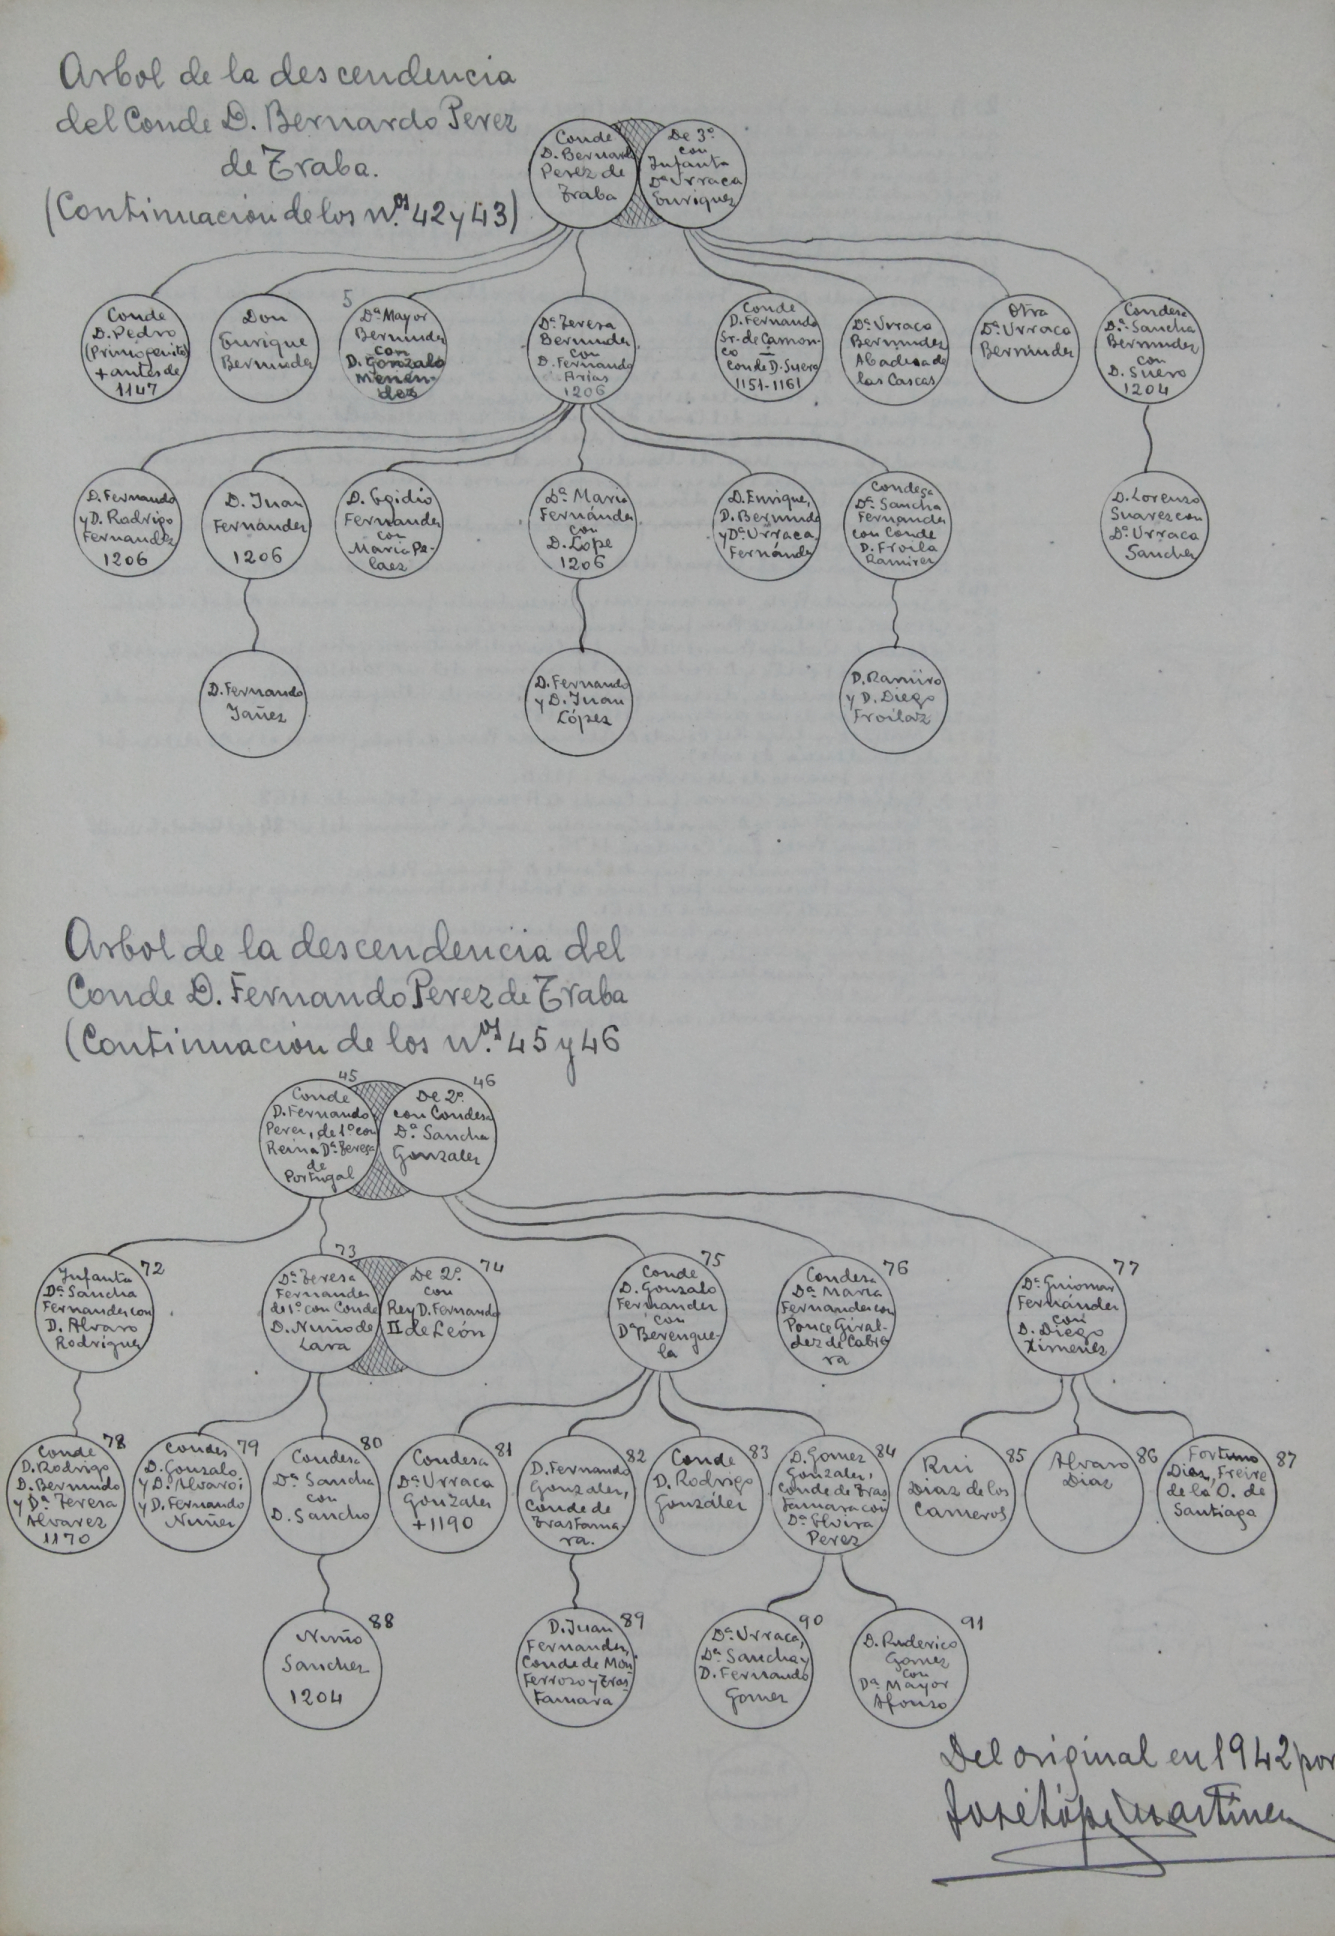 Arbol de la descendencia
del Conde D. Bernardo Perez
de Traba.
(Continuación de los n.os 42 y 43)
Conde
D. Bernardo
Perez de
Traba
De 3º
con
Infanta
Dª Urraca
Enriquez
Conde
D. Pedro
(Primogenito)
+ antes de
1147
Don
Enrique
Bermudez
5
Dª Mayor
Bermudez
con
D. Gonzalo
Menen-
dez
Dª Teresa
Bermudez
con
D. Fernando
Arias
1206
Conde
D. Fernando
Sr. de Camon-
co
Conde D. Suero
1151-1161
Dª Urraca
Bermudez
Abadesa de
las Cascas
Otra
Dª Urraca
Bermudez
Condesa
Dª Sancha
Bermudez
con
D. Suero
1204
D. Fernando
y D. Rodrigo
Fernandez
1206
D. Juan
Fernández
1206
D. Egidio
Fernandez
con
Maria Pe-
laez
Dª Maria
Fernández
con
D. Lope
1206
D. Enrique,
D. Bermudo
y Dª Urraca
Fernández
Condesa
Dª Sancha
Fernandez
con Conde
D. Froila
Ramirez
D. Lorenzo
Suarez con
Dª Urraca
Sanchez
D. Fernando
Yañez
D. Fernando
y D. Juan
López
D. Ramiro
y D. Diego
Froilaz
Arbol de la descendencia del
Conde D. Fernando Perez de Traba
(Continuación de los n.os 45 y 46
45
Conde
D. Fernando
Perez, de 1º con
Reina Dª Teresa
de
Portugal
46
De 2º
con Condesa
Dª Sancha
Gonzalez
72
Infanta
Dª Sancha
Fernandez con
D. Alvaro
Rodriguez
73
Dª Teresa
Fernandez
de 1º con Conde
D. Nuño de
Lara
74
De 2º
con
Rey D. Fernando
II de León
75
Conde
D. Gonzalo
Fernandez
con
Dª Berengue-
la
76
Condesa
Dª Maria
Fernandez con
Ponce Giral-
dez de Cabre
ra
77
Dª Guiomar
Fernández
con
D. Diego
Ximenez
78
Conde
D. Rodrigo
D. Bermudo
y Dª Teresa
Alvarez
1170
79
Condes
D. Gonzalo
y D. Alvaro;
y D. Fernando
Nuñez
80
Condesa
Dª Sancha
con
D. Sancho
81
Condesa
Dª Urraca
Gonzalez
+ 1190
82
D. Fernando
Gonzalez,
Conde de
Trastama-
ra.
83
Conde
D. Rodrigo
González
84
D. Gomez
Gonzalez,
Conde de Tras
tamara con
Dª Elvira
Perez
85
Rui
Diaz de los
Cameros
86
Alvaro
Diaz
87
Fortuno
Dias, Freire
de la O. de
Santiago
88
Nuño
Sanchez
1204
89
D. Juan
Fernandez,
Conde de Mon
ferroso y Tras
tamara
90
Dª Urraca,
Dª Sancha y
D. Fernando
Gomez
91
D. Ruderico
Gomez
con
Dª Mayor
Afonso
Del original en 1942 por
José López Martínez